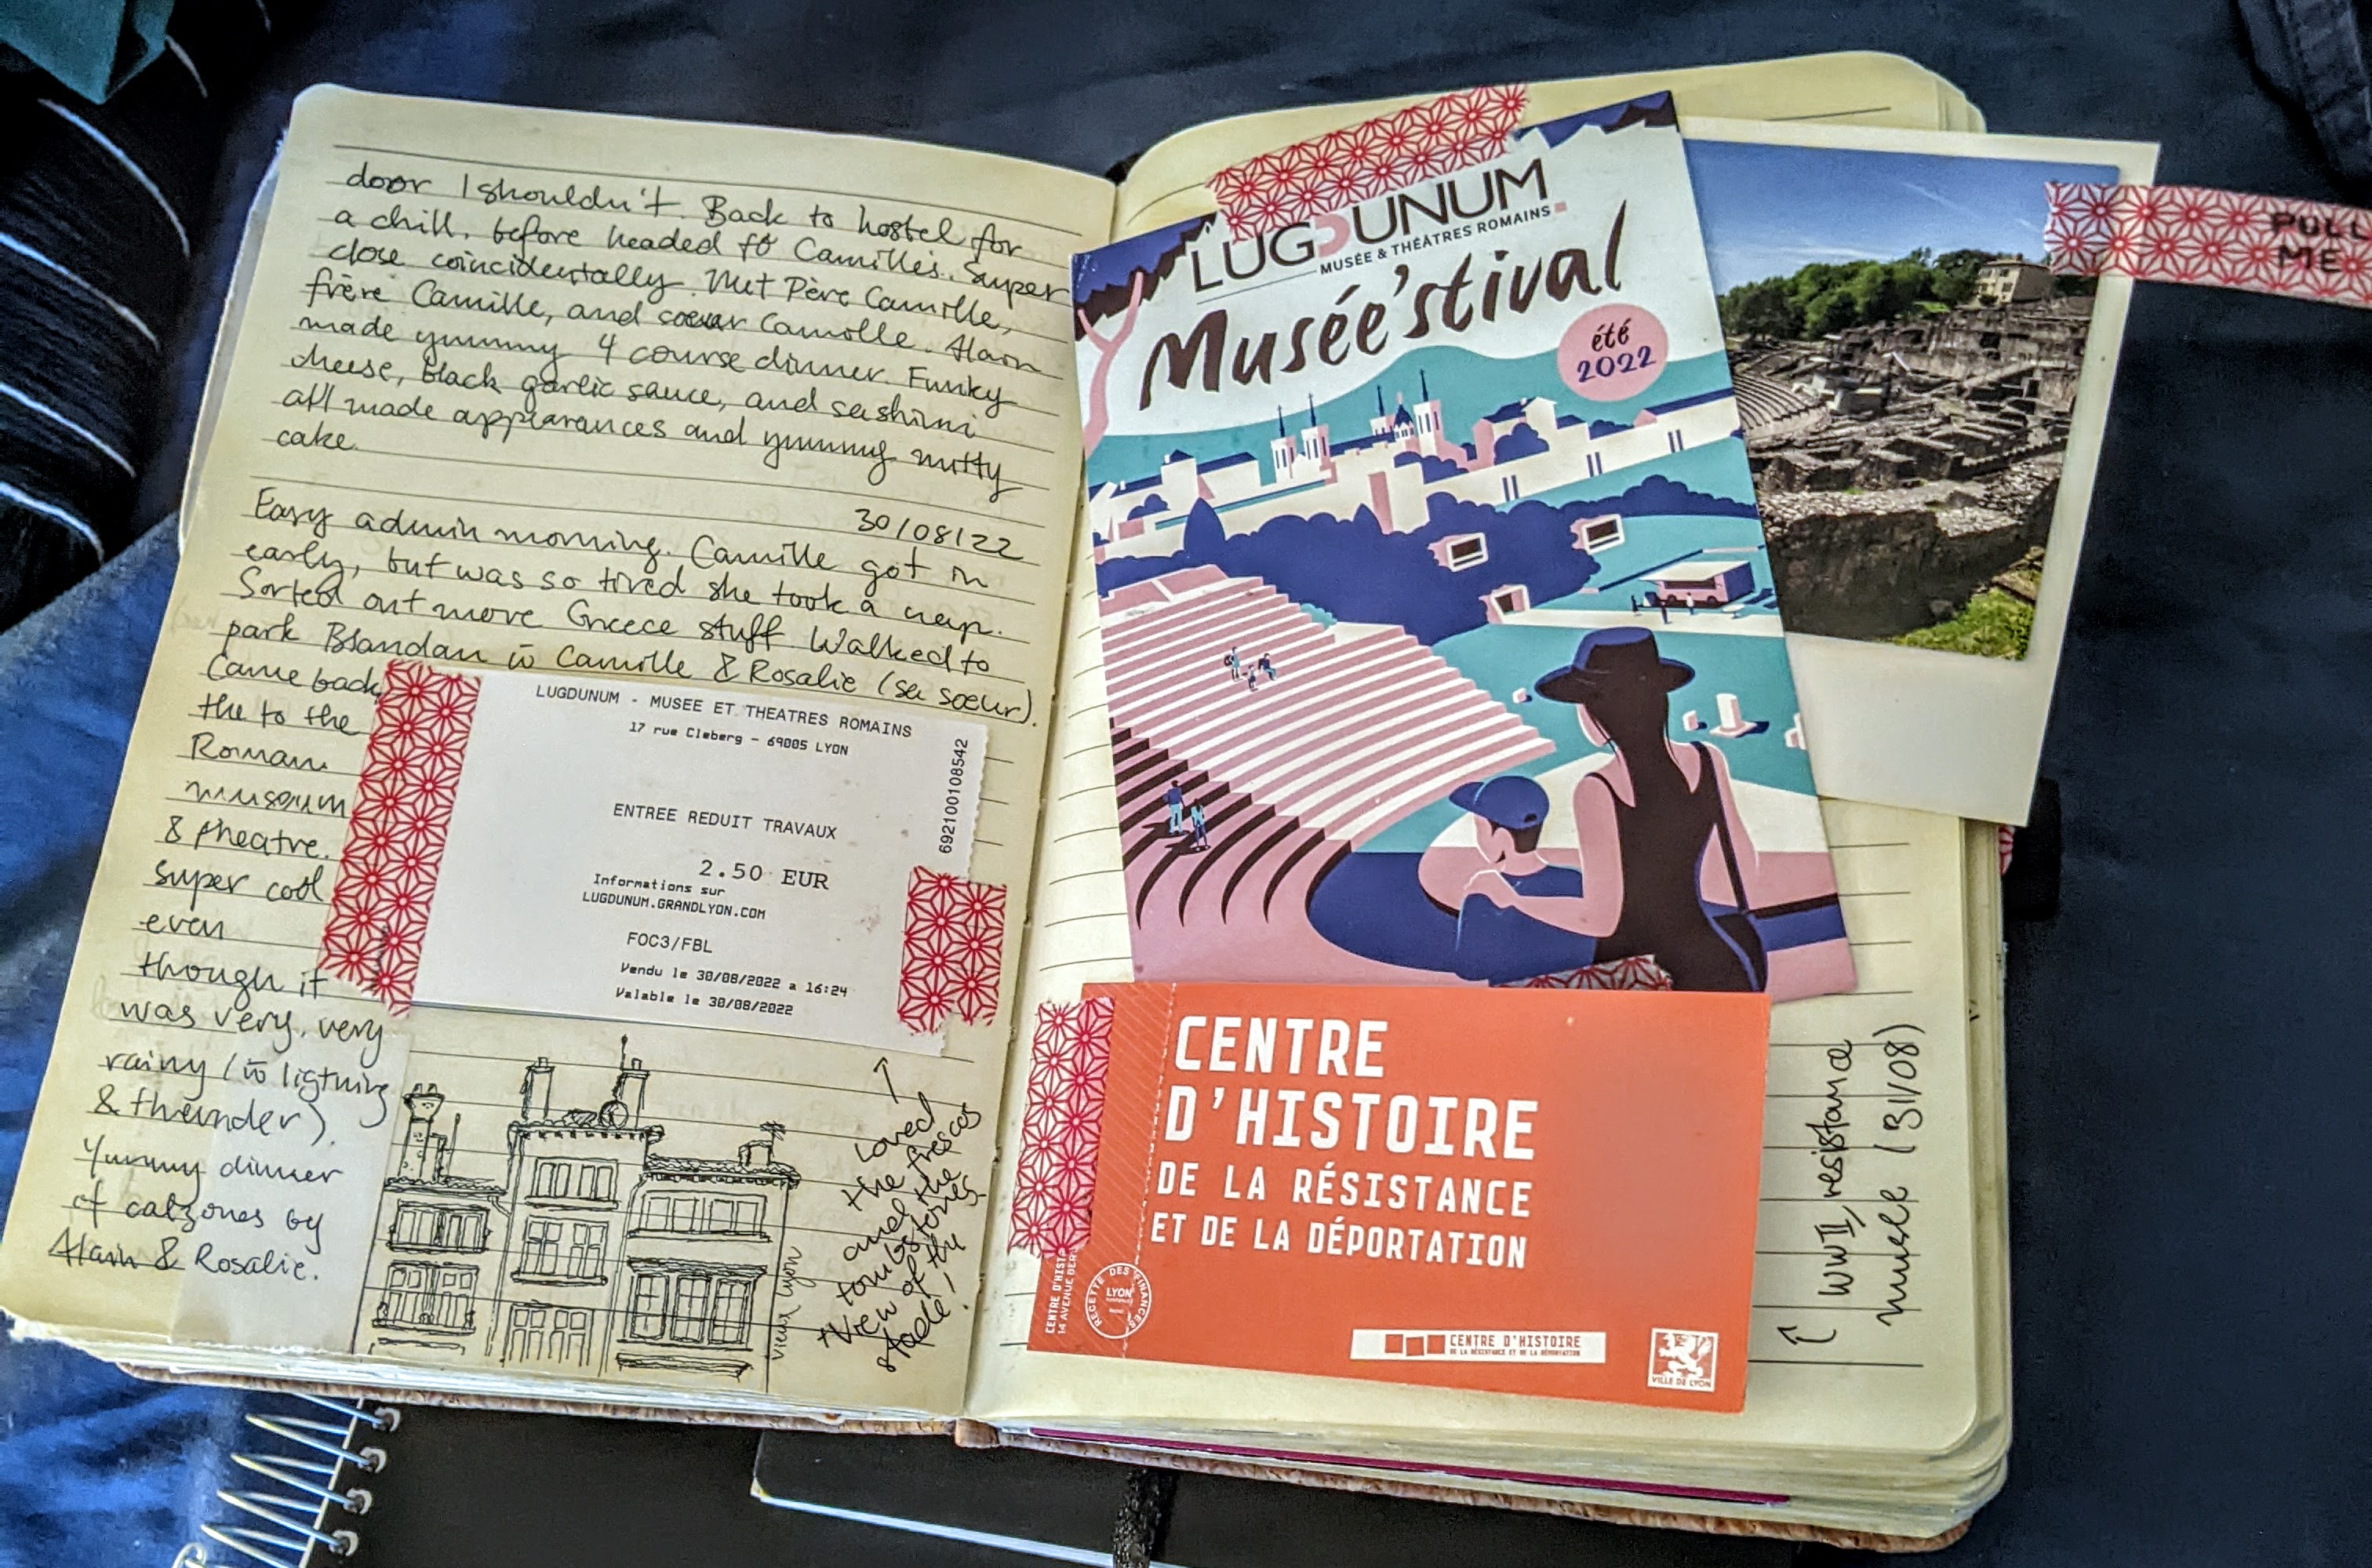 door I shouldn't. Back to hostel for
a chill, before headed to Camille's. Super
close coincidentally. Met Père Camille,
frère Camille, and soeur Camille. Alain
made yummy 4 course dinner. Funky
cheese, black garlic sauce, and sashimi
all made appearances and yummy nutty
cake.
30/08/22
Easy admin morning. Camille got in
early, but was so tired she took a nap.
Sorted out more Greece stuff. Walked to
park Blandan w̄ Camille & Rosalie (sa sœur).
Came back,
the to the
Roman
museum
& theatre.
Super cool
even
though it
was very, very
rainy (w̄ ligtning
& thunder).
Yummy dinner
of calzones by
Alain & Rosalie.
LUGDUNUM - MUSEE ET THEATRES ROMAINS
17 rue Cleberg - 69005 LYON
ENTREE REDUIT TRAVAUX
2.50 EUR
Informations sur
LUGDUNUM.GRANDLYON.COM
FOC3/FBL
Vendu le 30/08/2022 a 16:24
Valable le 30/08/2022
6921001008542
Vieux Lyon
↑
Loved
the frescos
and the
tombstones
+ view of the
stade!
LUGDUNUM
MUSÉE & THÉÂTRES ROMAINS
Musée'stival
été
2022
PULL
ME
CENTRE
D'HISTOIRE
DE LA RÉSISTANCE
ET DE LA DÉPORTATION
CENTRE D'HIST
14 AVENUE BER
RECETTE DES FINANCES
LYON
CENTRE D'HISTOIRE
DE LA RÉSISTANCE ET DE LA DÉPORTATION
VILLE DE LYON
↑ WWII, resistance
musée (31/08)